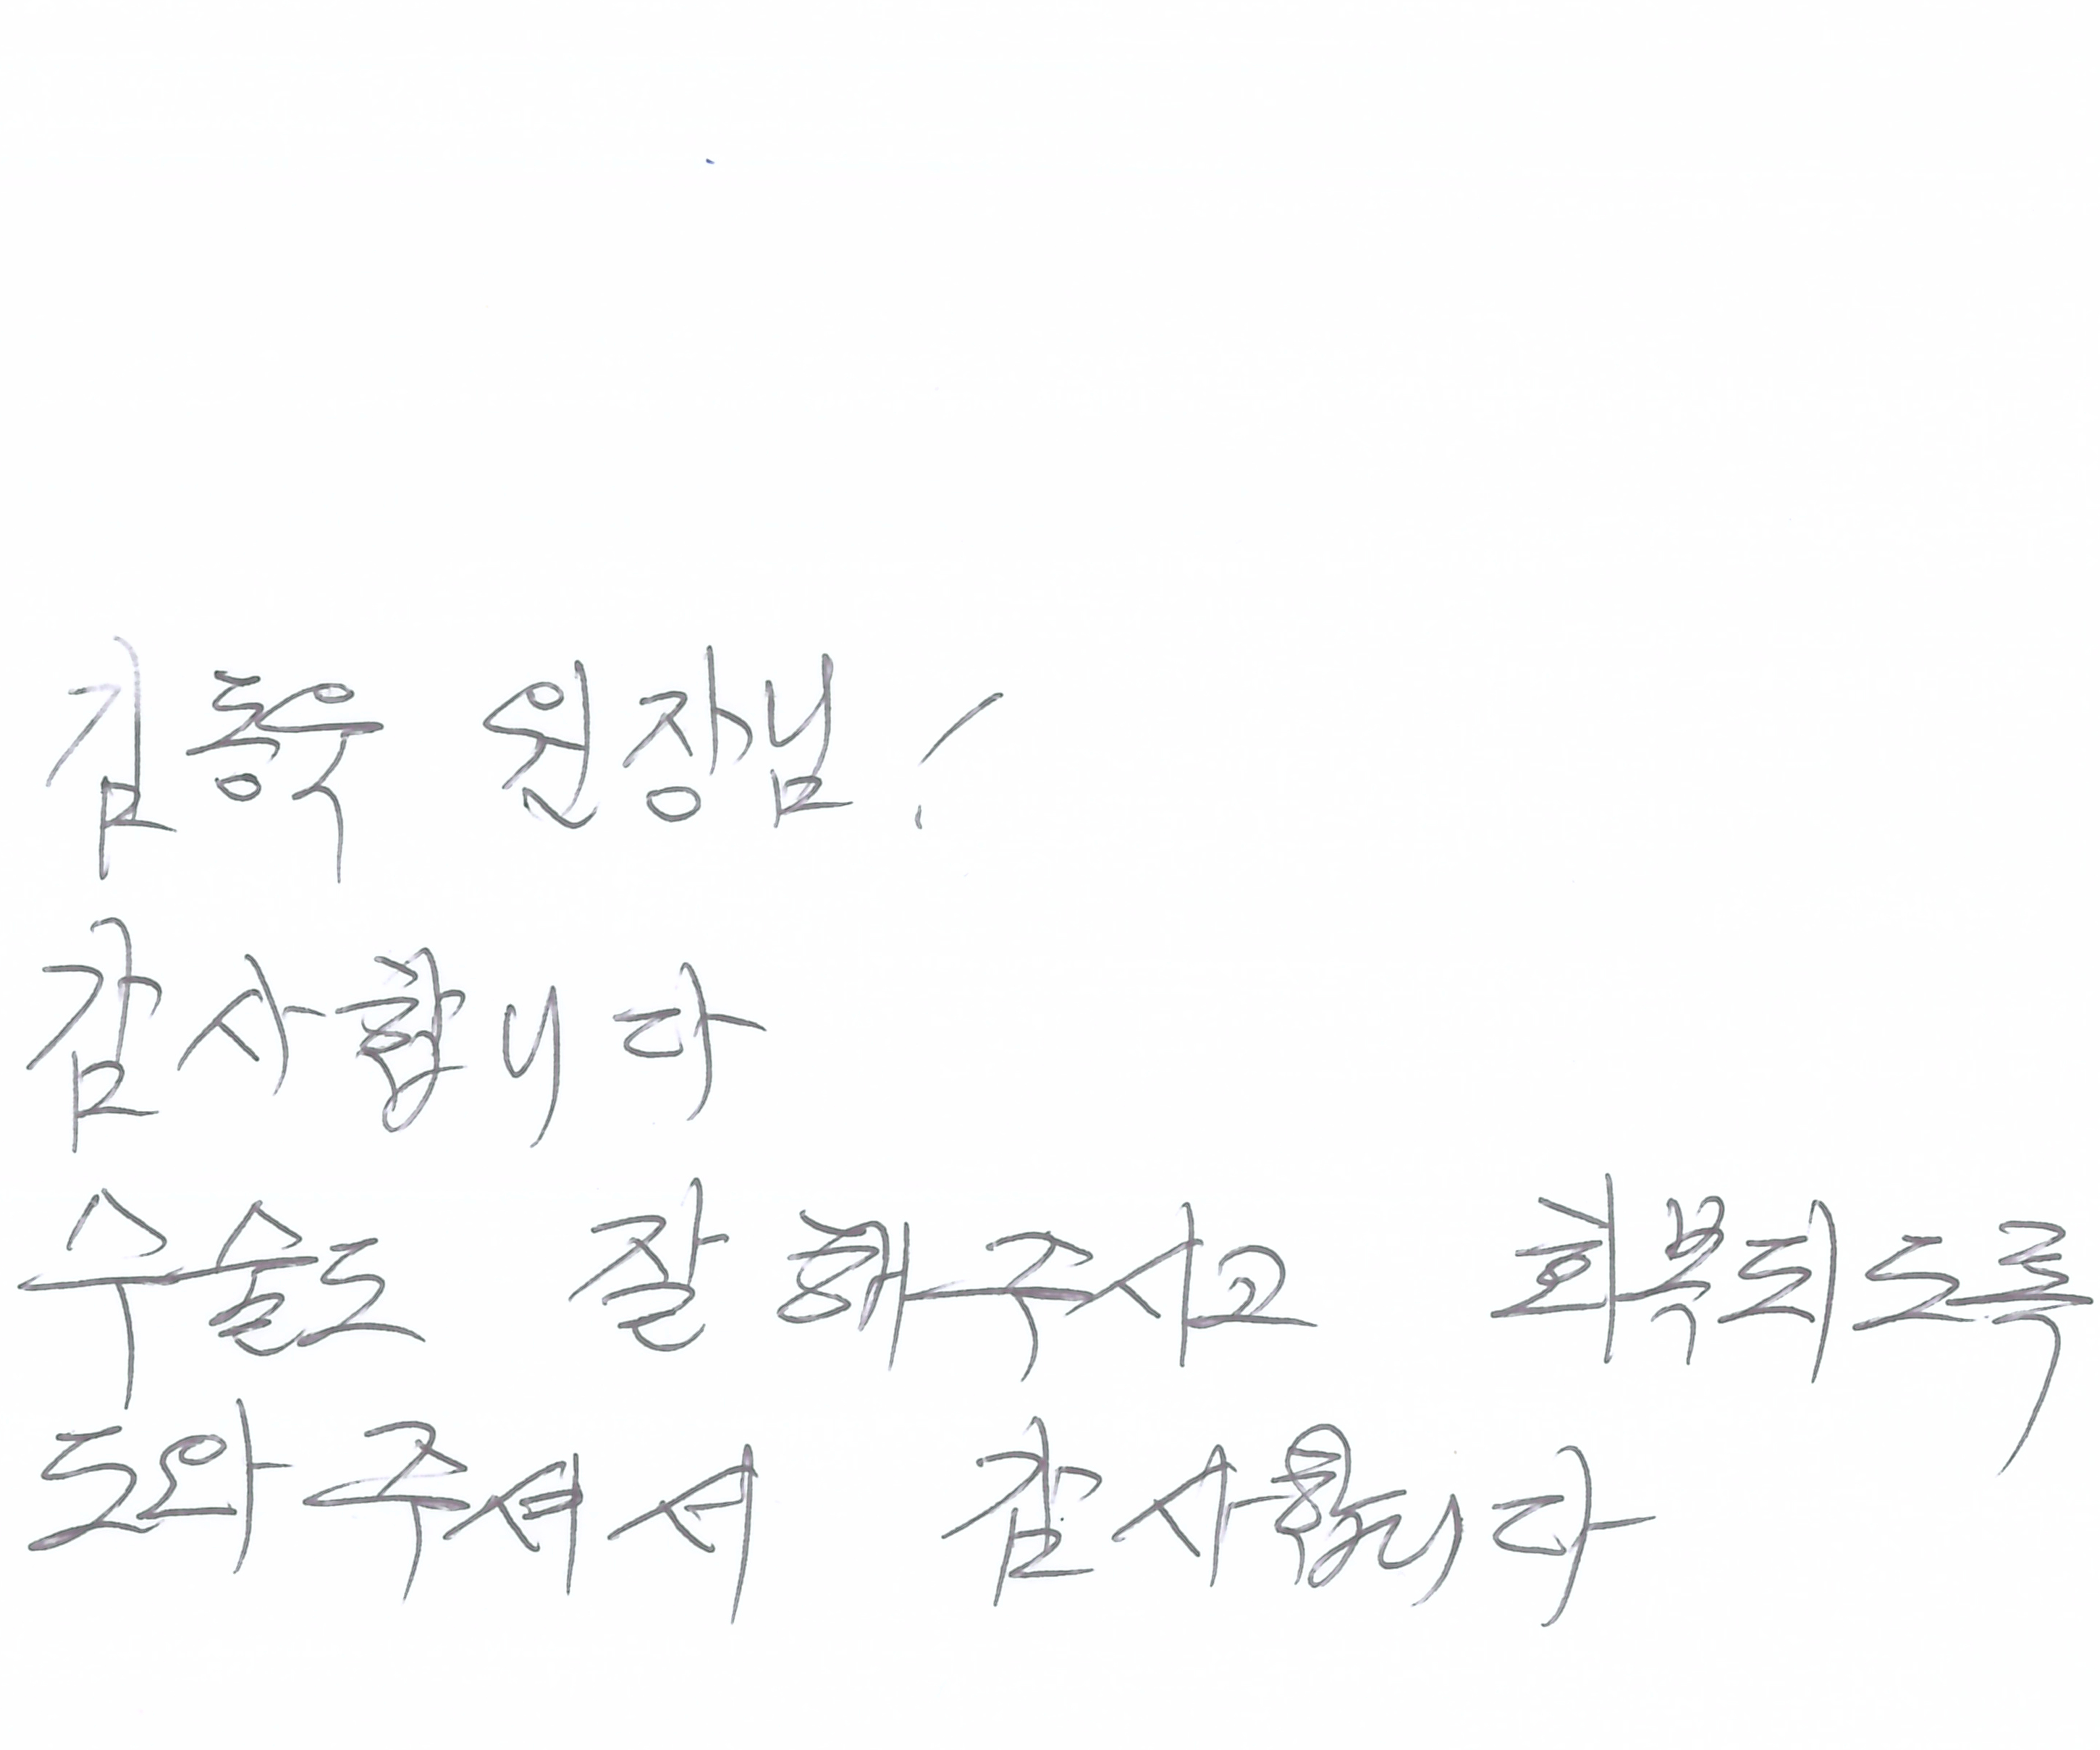 김흥욱 원장님!
감사합니다
수술도 잘 해주시고 회복되도록
도와주셔서 감사합니다